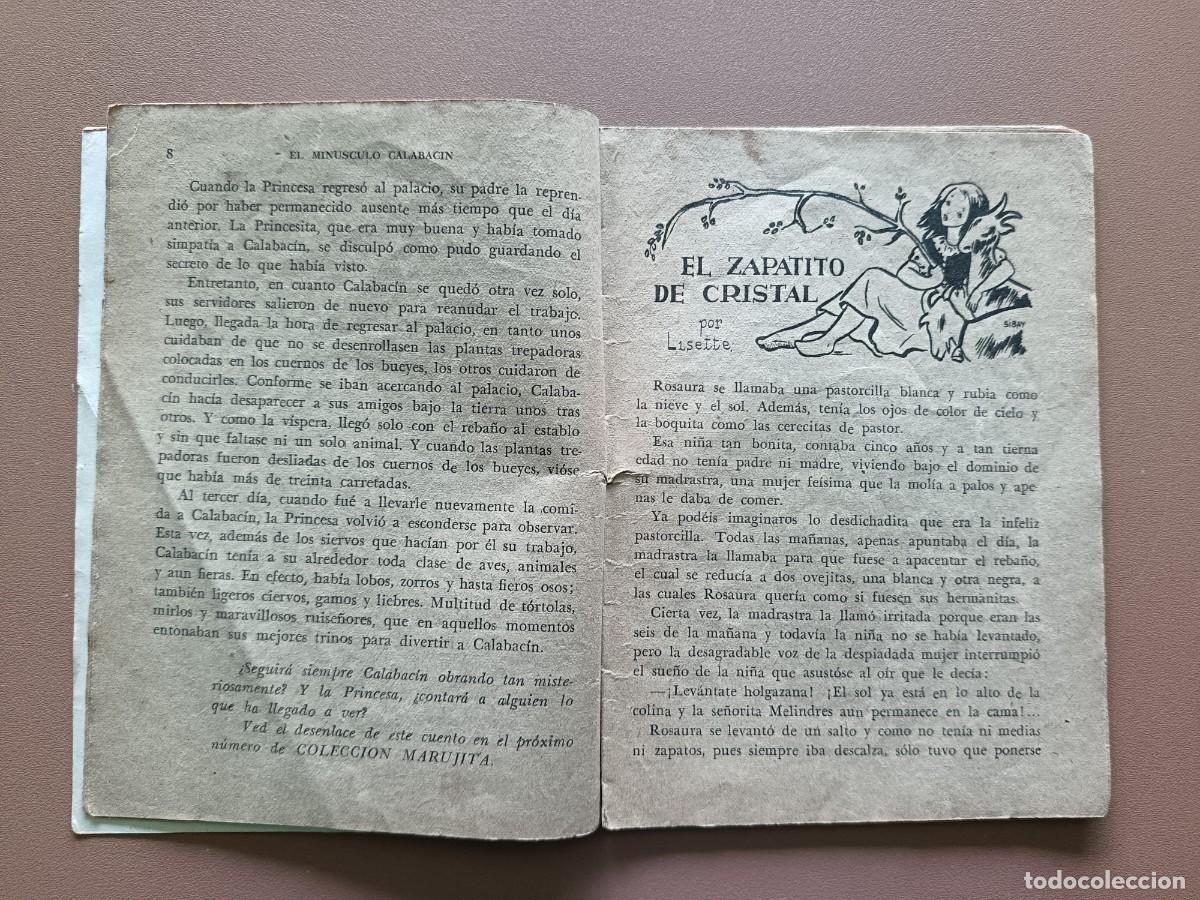 8
- EL MINUSCULO CALABACIN
Cuando la Princesa regresó al palacio, su padre la repren-
dió por haber permanecido ausente más tiempo que el día
anterior. La Princesita, que era muy buena y había tomado
simpatía a Calabacín, se disculpó como pudo guardando el
secreto de lo que había visto.
Entretanto, en cuanto Calabacín se quedó otra vez solo,
sus servidores salieron de nuevo para reanudar el trabajo.
Luego, llegada la hora de regresar al palacio, en tanto unos
cuidaban de que no se desenrollasen las plantas trepadoras
colocadas en los cuernos de los bueyes, los otros cuidaron de
conducirles. Conforme se iban acercando al palacio, Calaba-
cín hacía desaparecer a sus amigos bajo la tierra unos tras
otros. Y como la víspera, llegó solo con el rebaño al establo
y sin que faltase ni un solo animal. Y cuando las plantas tre-
padoras fueron desliadas de los cuernos de los bueyes, vióse
que había más de treinta carretadas.
Al tercer día, cuando fué a llevarle nuevamente la comi-
da a Calabacín, la Princesa volvió a esconderse para observar.
Esta vez, además de los siervos que hacían por él su trabajo,
Calabacín tenía a su alrededor toda clase de aves, animales
y aun fieras. En efecto, había lobos, zorros y hasta fieros osos;
también ligeros ciervos, gamos y liebres. Multitud de tórtolas,
mirlos y maravillosos ruiseñores, que en aquellos momentos
entonaban sus mejores trinos para divertir a Calabacín.
¿Seguirá siempre Calabacín obrando tan miste-
riosamente? Y la Princesa, ¿contará a alguien lo
que ha llegado a ver?
Ved el desenlace de este cuento en el próximo
número de COLECCION MARUJITA.
EL ZAPATITO
DE CRISTAL
por
Lisette
SIBAY
Rosaura se llamaba una pastorcilla blanca y rubia como
la nieve y el sol. Además, tenía los ojos de color de cielo y
la boquita como las cerecitas de pastor.
Esa niña tan bonita, contaba cinco años y a tan tierna
edad no tenía padre ni madre, viviendo bajo el dominio de
su madrastra, una mujer feísima que la molía a palos y ape-
nas le daba de comer.
Ya podéis imaginaros lo desdichadita que era la infeliz
pastorcilla. Todas las mañanas, apenas apuntaba el día, la
madrastra la llamaba para que fuese a apacentar el rebaño,
el cual se reducía a dos ovejitas, una blanca y otra negra, a
las cuales Rosaura quería como si fuesen sus hermanitas.
Cierta vez, la madrastra la llamó irritada porque eran las
seis de la mañana y todavía la niña no se había levantado,
pero la desagradable voz de la despiadada mujer interrumpió
el sueño de la niña que asustóse al oír que le decía:
—¡Levántate holgazana! ¡El sol ya está en lo alto de la
colina y la señorita Melindres aun permanece en la cama!...
Rosaura se levantó de un salto y como no tenía ni medias
ni zapatos, pues siempre iba descalza, sólo tuvo que ponerse
todocoleccion